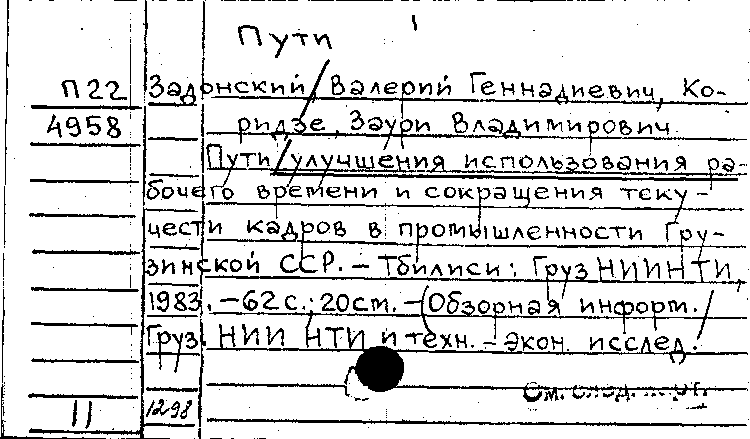 Пути
П22 Задонский, Валерий Геннадиевич, Ко-
4958 ридзе, Заури Владимирович
Пути улучшения использования ра-
бочего времени и сокращения теку-
чести кадров в промышленности Гру-
зинской ССР. – Тбилиси: Груз НИИНТИ,
1983. – 62 с.; 20 см. – (Обзорная информ. /
Груз. НИИ НТИ и техн. – экон. исслед.
См. след. карт.
11 12-98